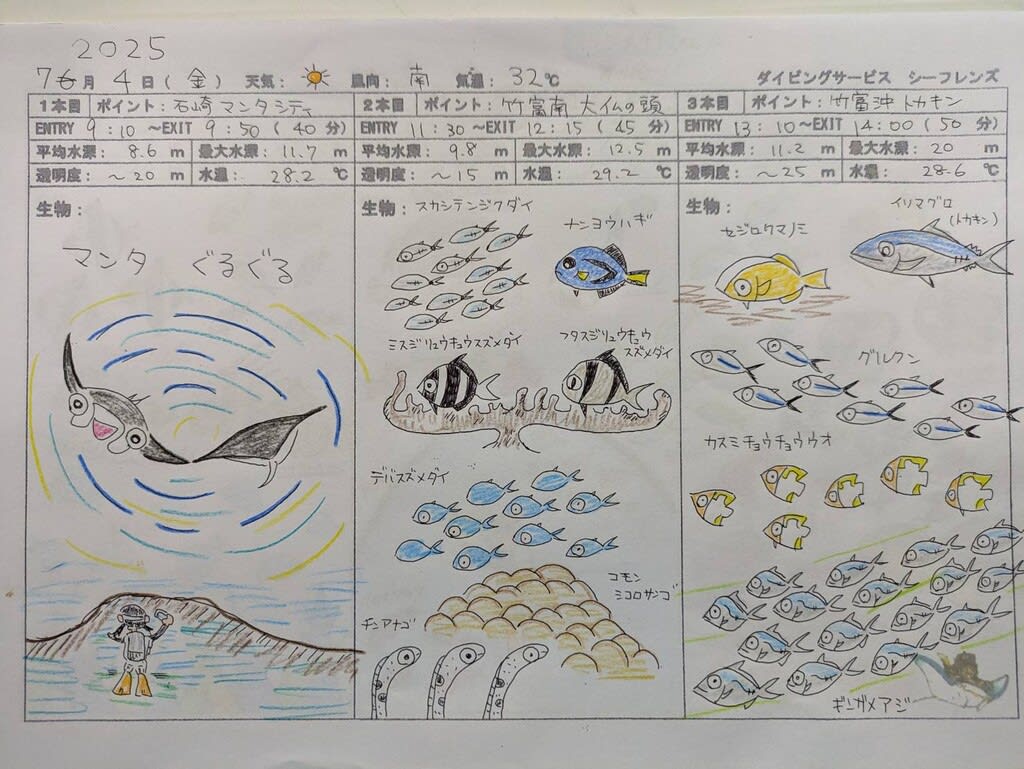 2025
7月 4日(金) 天気: 風向: 南 気温: 32℃ ダイビングサービス シーフレンズ
1本目 ポイント: 石崎 マンタシティ
ENTRY 9:10 ~EXIT 9:50 (40分)
平均水深: 8.6 m 最大水深: 11.7 m
透明度: ~20 m 水温: 28.2 ℃
生物:
マンタ ぐるぐる
2本目 ポイント: 竹富南 大仏の頭
ENTRY 11:30 ~EXIT 12:15 (45分)
平均水深: 9.8 m 最大水深: 12.5 m
透明度: ~15 m 水温: 29.2 ℃
生物: スカシテンジクダイ
ナンヨウハギ
ミスジリュウキュウスズメダイ
フタスジリュウキュウ
スズメダイ
デバスズメダイ
コモン
ミコロサンゴ
チンアナゴ
3本目 ポイント: 竹富沖 トカキン
ENTRY 13:10 ~EXIT 14:00 (50分)
平均水深: 11.2 m 最大水深: 20 m
透明度: ~25 m 水温: 28.6 ℃
生物:
イソマグロ
(トカキン)
セジロクマノミ
グルクン
カスミチョウチョウウオ
ギンガメアジ